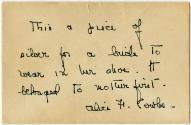 This a piece of
silver for a bride to
wear in her shoe. It
belonged to mother first.
Alice H.